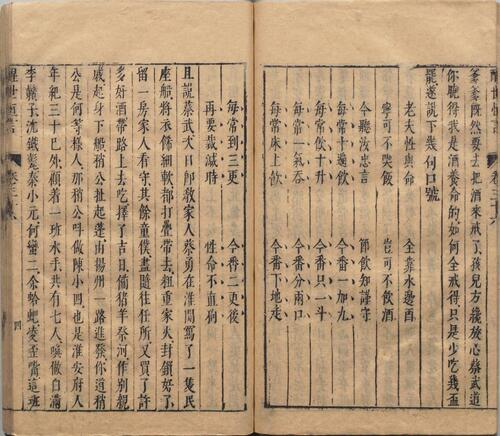 醒世恒言 卷三十六
爹爹旣然要去把酒來戒了孩兒方纔放心蔡武道
你曉得我是酒養命的如何全戒得只是少吃幾盃
罷遂說下幾句口號
老夫性與命 全靠水邊酉
寧可不喫飯 豈可不飲酒
今聽汝忠言 節飲知謹守
每常十遍飲 今番一加九
每常飲十升 今番只一斗
每常一氣吞 今番分兩口
每常床上飲 今番下地走
每常到三更 今番二更後
再要裁減時 性命不直狗
且說蔡武次日卽敎家人蔡勇在淮關寫了一隻民
座船將衣飾細軟都打疊帶去粗重家火封鎖好了
留一房家人看守其餘童僕盡隨往任所又買了許
多好酒帶路上去吃擇了吉日備猪羊祭河作別親
戚起身下船稍公扯起蓬由揚州一路進發你道稍
公是何等樣人那稍公叫做陳小四也是淮安府人
年紀三十已外顧着一班水手共有七人喚做白滿
李鬍子沈鐵甏秦小元何蠻二余蛤蚆凌歪嘴這班
醒世恒言 卷三十六 四